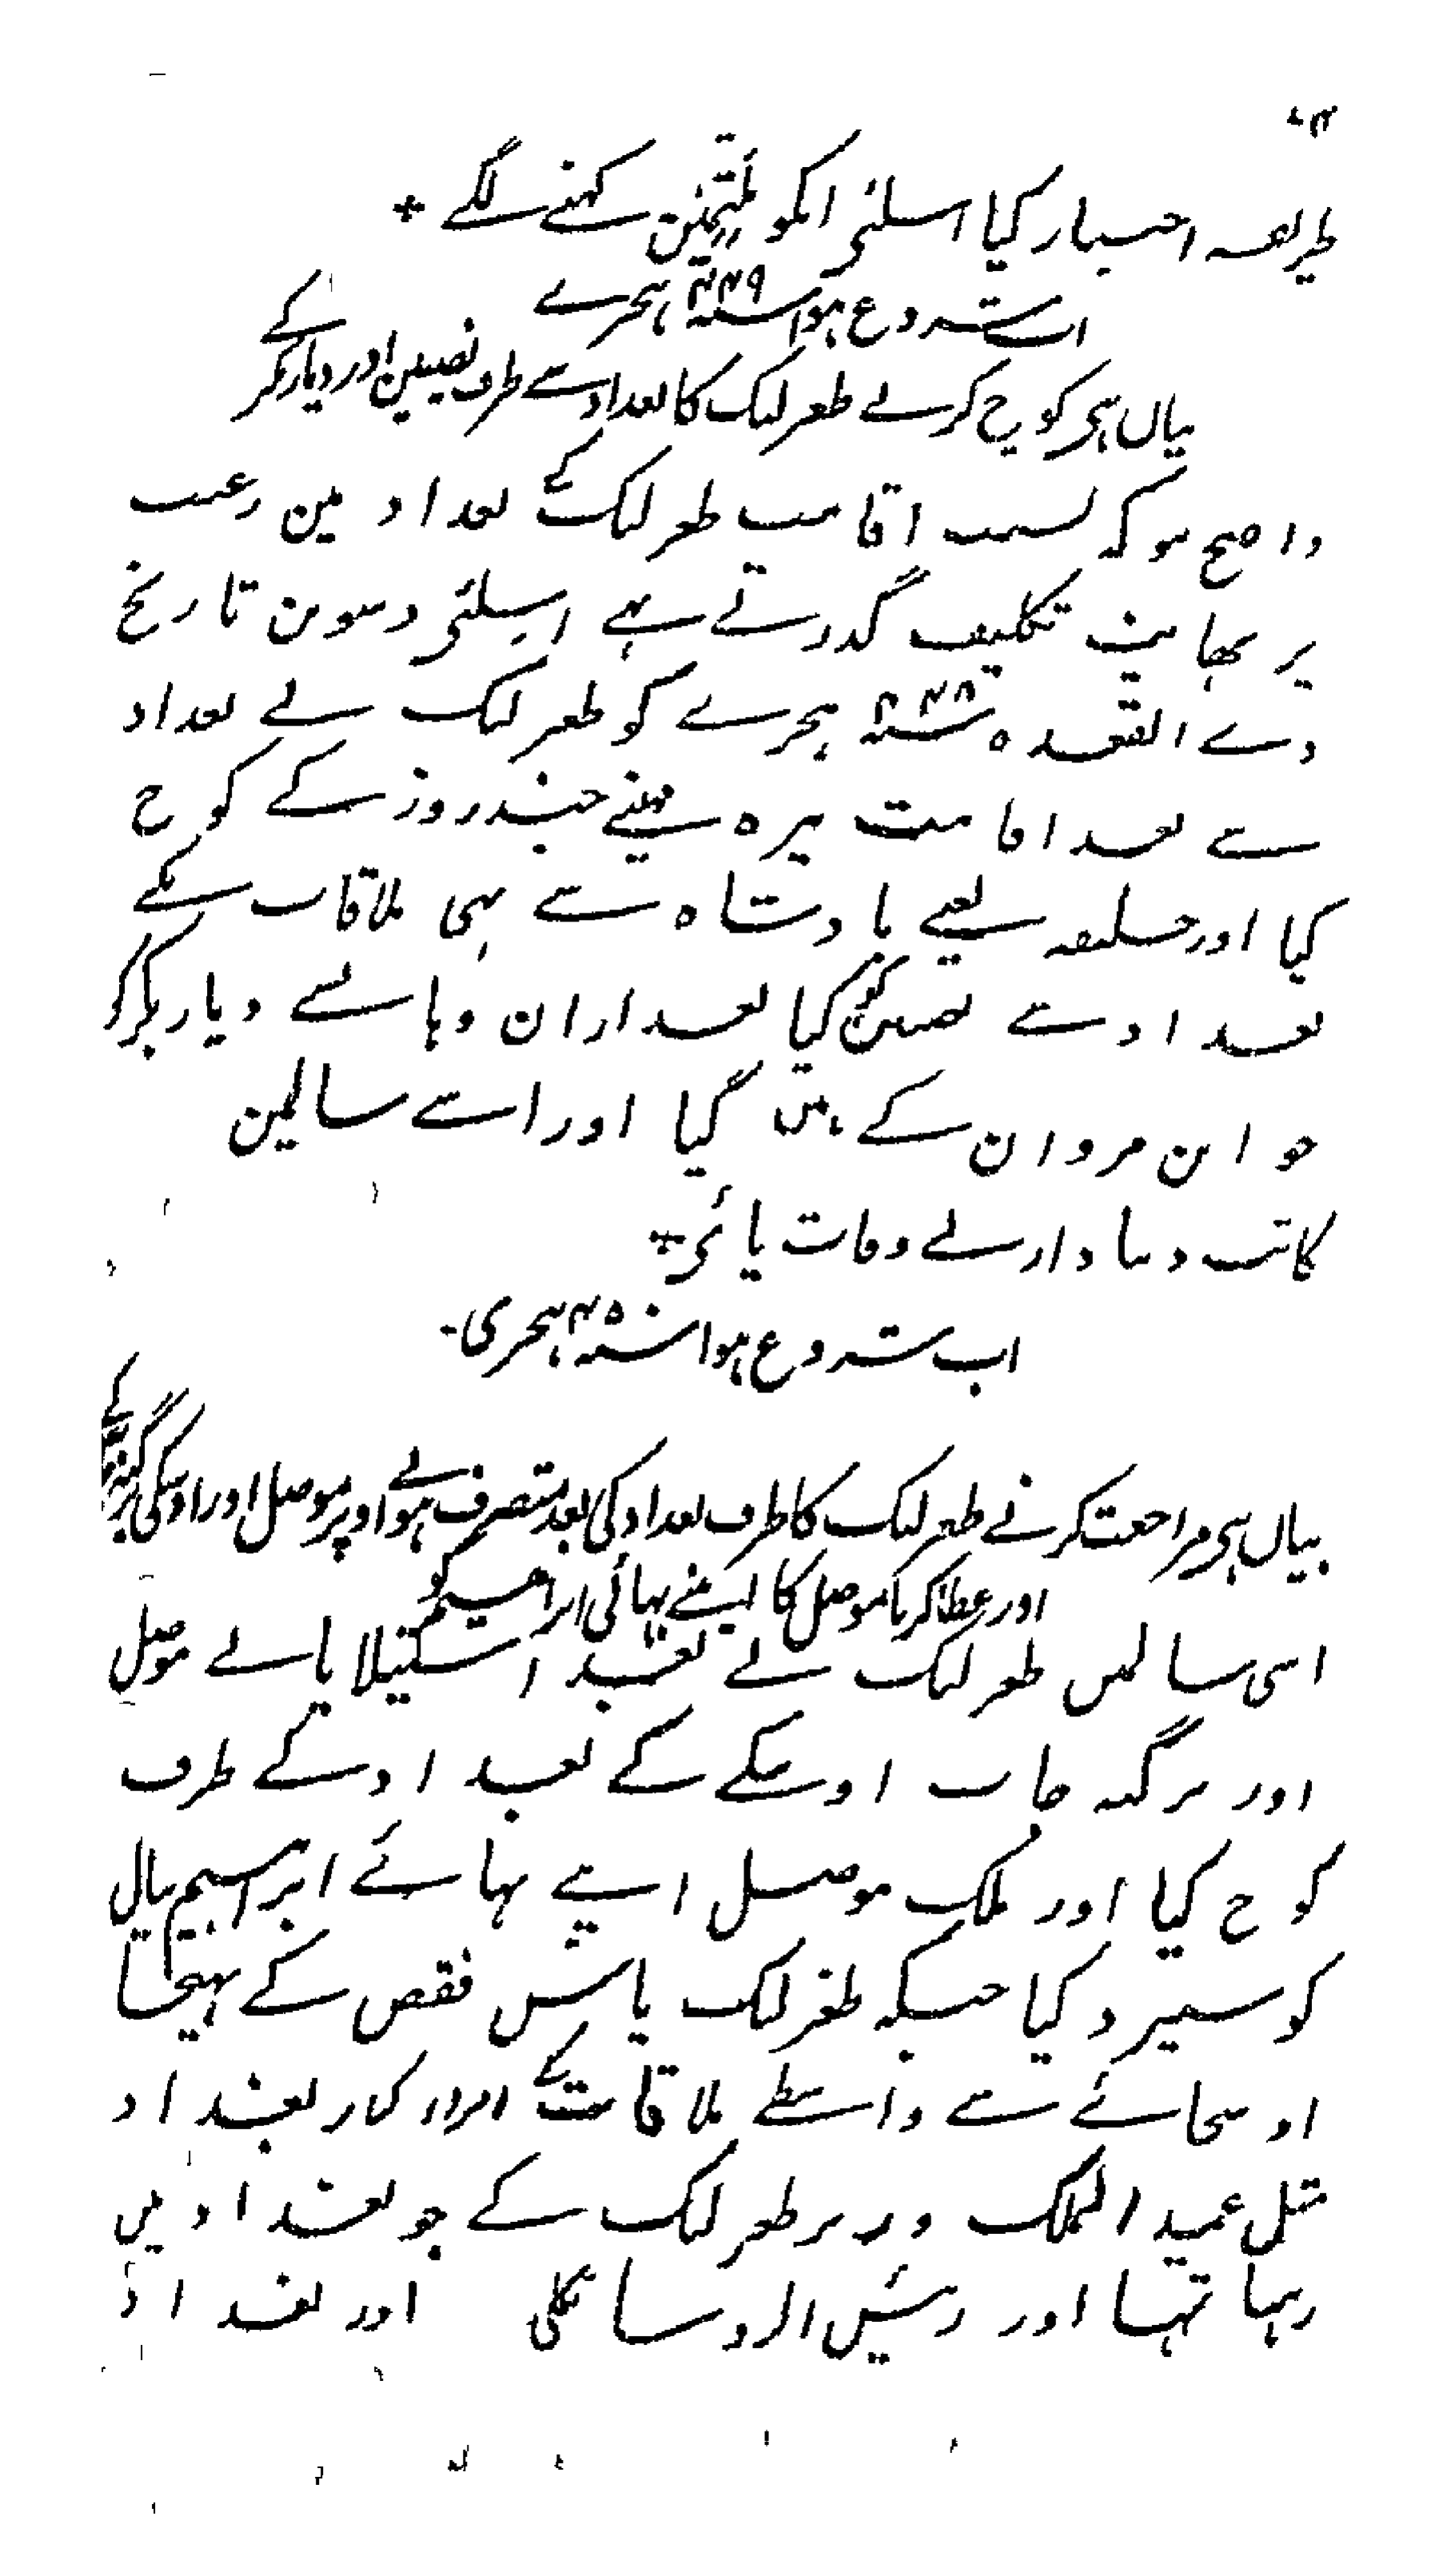 طریقہ اختیار کیا اسلئی انکو ملثمین کہنے لگے +
اب شروع ہوا سنہ ۴۴۹ ہجرے
بیان ہی کوچ کرنے طغرلبک کا بغداد سے طرف نصیبین اور دیاربکر کے
واضح ہو کہ بسبب اقامت طغرلبک کے بغداد مین رعیت
پر نہایت تکلیف گذرتے ہے اسلئی دسوین تاریخ
ذے القعدہ سنہ ۴۴۸ ہجرے کو طغرلبک نے بغداد
سے بعد اقامت تیرہ مہینے چند روز کے کوچ
کیا اور خلیفہ یعنے بادشاہ سے بہی ملاقات نکے
بغداد سے نصیبین کو گیا بعد ازان وہانسے دیاربکر کو
جو ابن مروان کے پاس گیا اور اسے سالمین
کاتب دنیادارنے وفات پائی +
اب شروع ہوا سنہ ۴۵۰ ہجری -
بیان ہی مراجعت کرنے طغرلبک کا طرف بغداد کی بعد متصرف ہونے اوپر موصل اور اوسکی کے
اور عطا کرنا موصل کا اپنے بہائی ابراہیم کو
اسی سالمین طغرلبک نے بعد استیلا پانے موصل
اور پرگنہ جات اوسکے کے بغداد کے طرف
کوچ کیا اور ملک موصل اپنے بہائے ابراہیم نیال
کو سپرد کیا جبکہ طغرلبک پاس قفص کے پہنچا
اوسجائے سے واسطے ملاقات کے بغداد
مثل عمید الملک وزیر طغرلبک کے جو بغداد میں
رہا تہا اور رئیس الروسا نکلی اور بغداد